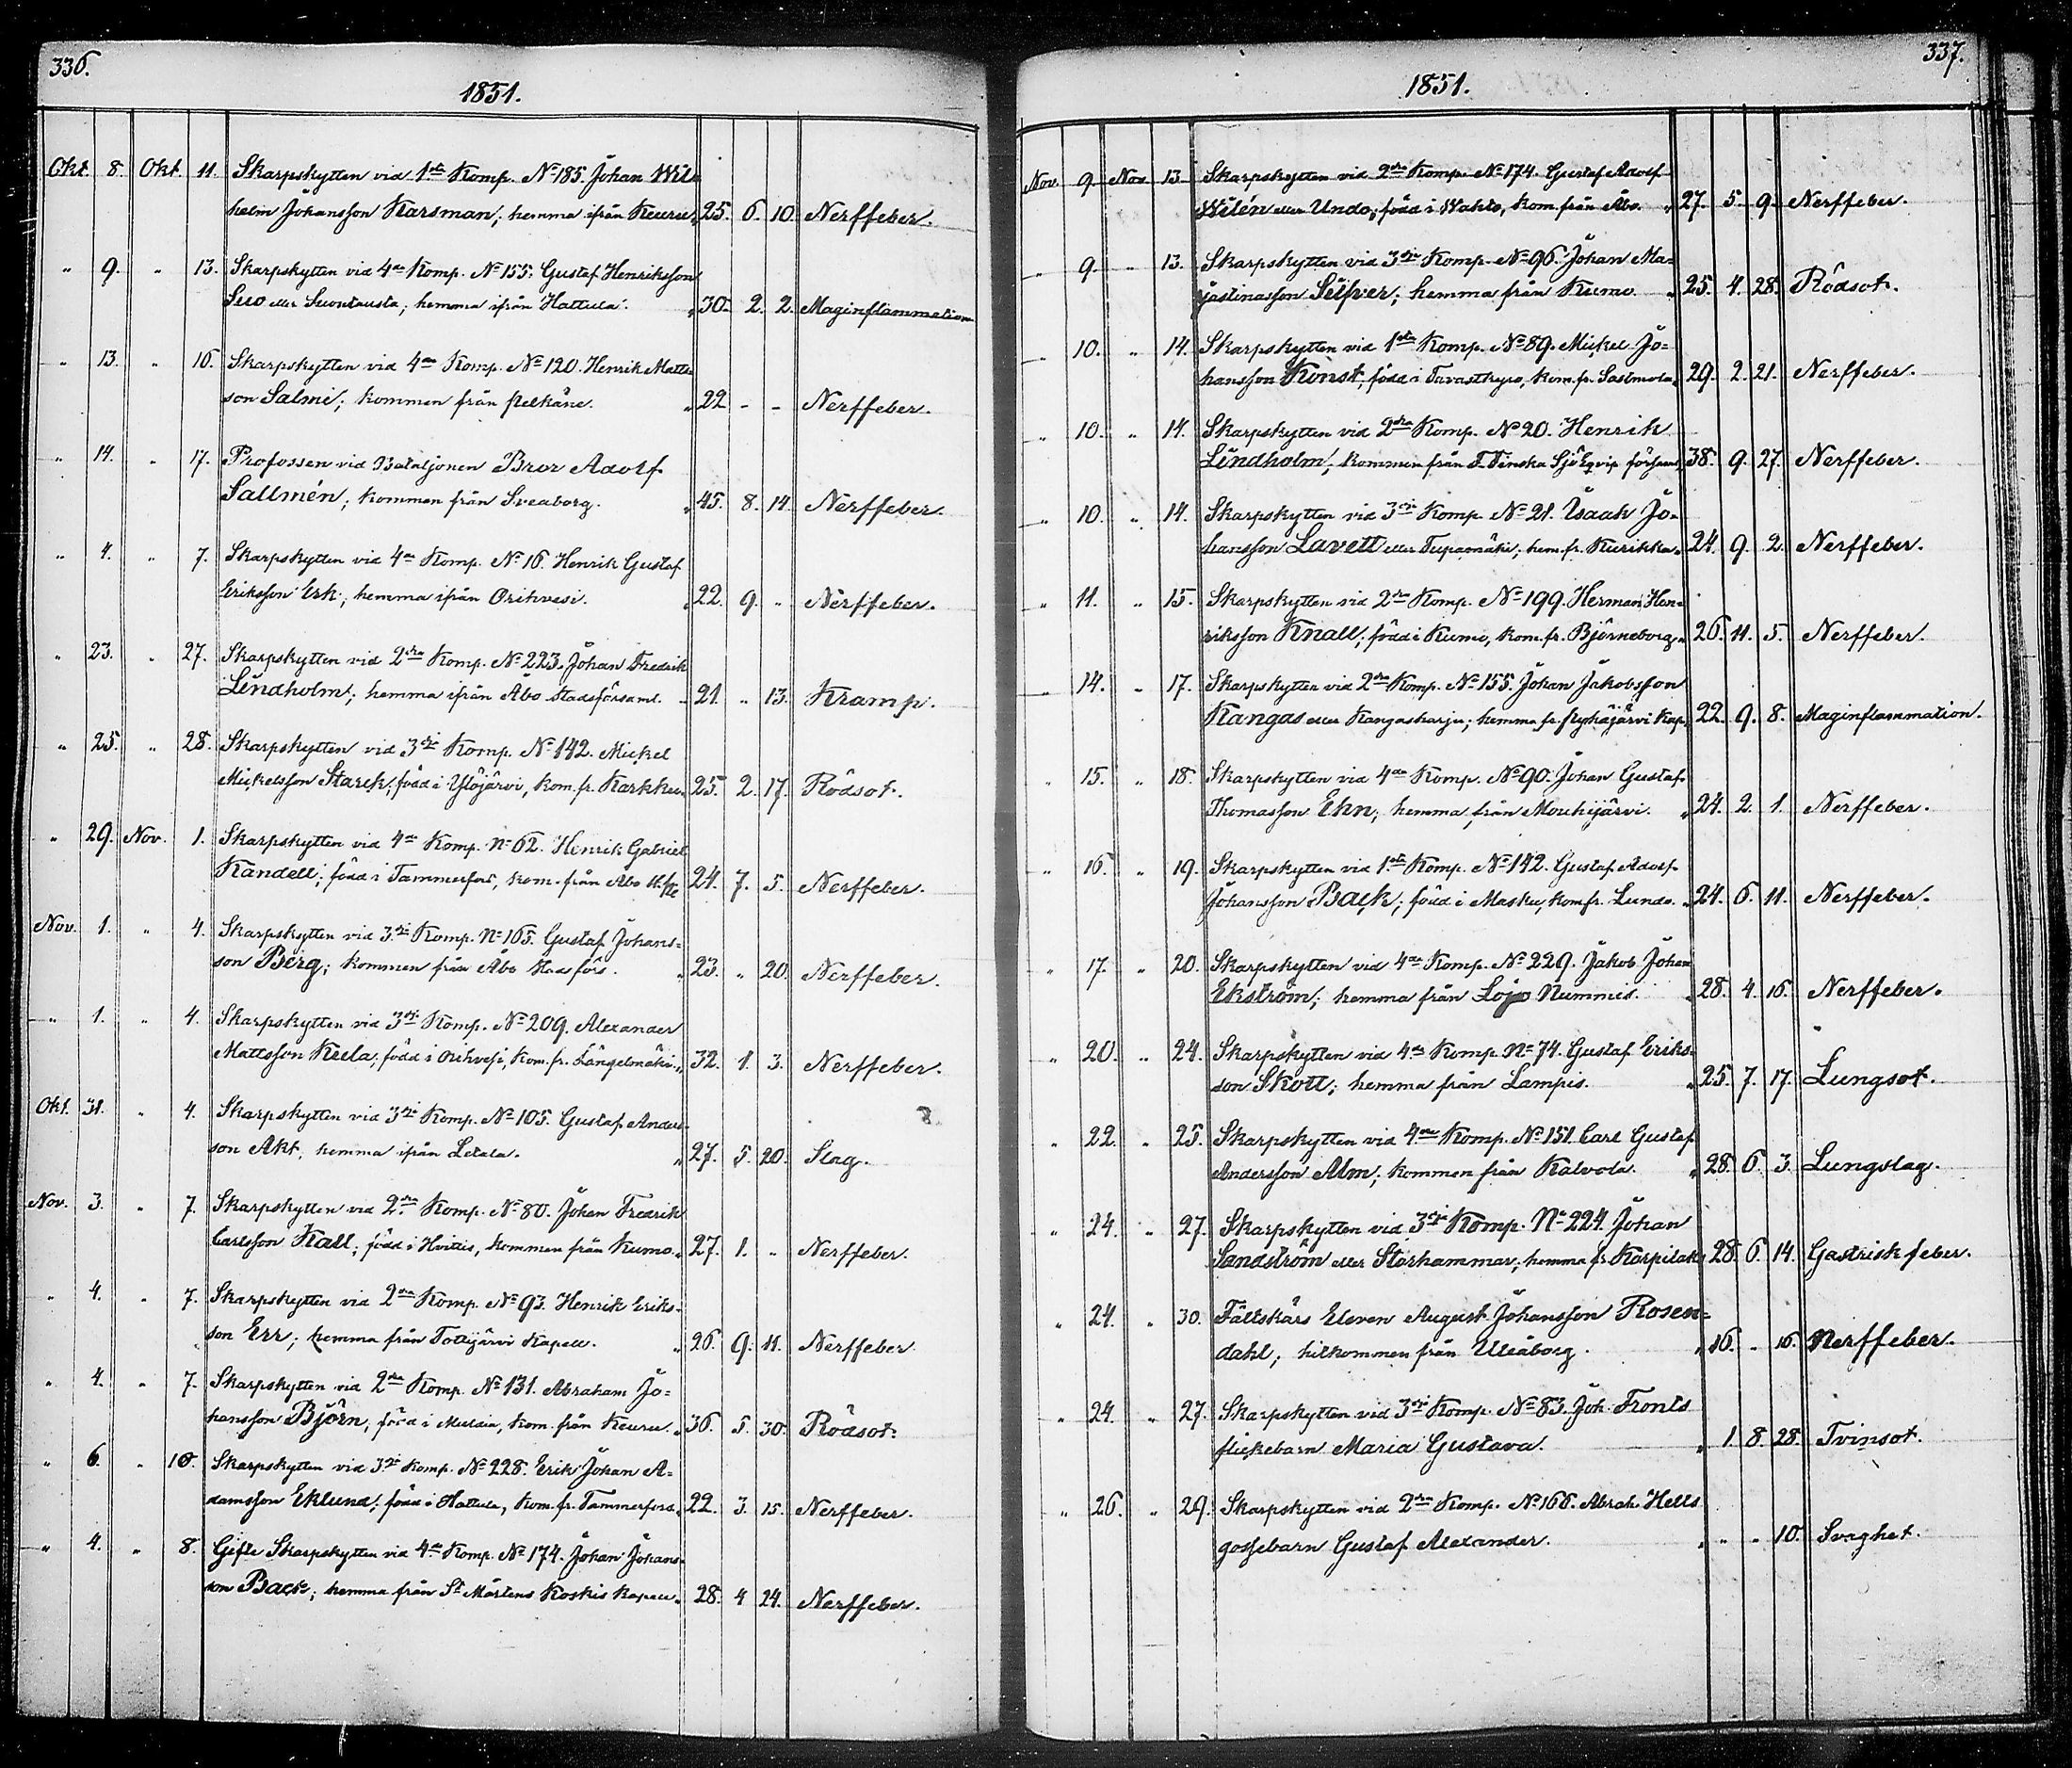 336.
1851.
Okt. 8. Okt. 11. Skarpskytten vid 1sta Komp. No 185. Johan Wil-
helm Johansson Karsman; hemma ifrån Keuru „ 25. 6. 10. Nerffeber.
„ 9. „ 13. Skarpskytten vid 4de Komp. No 155. Gustaf Henriksson
Suo eller Suontausta; hemma ifrån Hattula. „ 30. 2. 2. Maginflammation
„ 13. „ 16. Skarpskytten vid 4de Komp. No 120. Henrik Matts-
son Salmi; kommen från Pelkäne. „ 22 - - Nerffeber.
„ 14. „ 17. Profossen vid Bataljonen Bror Adolf
Sallmén; kommen från Sveaborg. „ 45. 8. 14. Nerffeber.
„ 4. „ 7. Skarpskytten vid 4de Komp. No 16. Henrik Gustaf
Eriksson Erk; hemma ifrån Orihvesi. „ 22. 9. „ Nerffeber.
„ 23. „ 27. Skarpskytten vid 2dra Komp. No 223. Johan Fredrik
Lindholm; hemma ifrån Åbo Stadsförsaml. „ 21. „ 13. Kramp.
„ 25. „ 28. Skarpskytten vid 3dje Komp. No 142. Mickel
Mickelsson Starck; född i Ylöjärvi, kom. fr. Karkku „ 25. 2. 17. Rödsot.
„ 29. Nov. 1. Skarpskytten vid 4de Komp. No 62. Henrik Gabriel
Kandell; född i Tammerfors, kom. från Åbo 24. 7. 5. Nerffeber.
Nov. 1. „ 4. Skarpskytten vid 3dje Komp. No 165. Gustaf Johans-
son Berg; kommen från Åbo Stadsförs. „ 23. „ 20. Nerffeber.
„ 1. „ 4. Skarpskytten vid 3dje Komp. No 209. Alexander
Mattsson Keela; född i Orihvesi, kom. fr. Längelmäki „ 32. 1. 3. Nerffeber.
Okt. 31. „ 4. Skarpskytten vid 3dje Komp. No 105. Gustaf Anders-
son Akt; hemma ifrån Letala. „ 27. 5. 20. Slag.
Nov. 3. „ 7. Skarpskytten vid 2dra Komp. No 80. Johan Fredrik
Carlsson Kall; född i Hvittis, kommen från Kumo. „ 27. 1. „ Nerffeber.
„ 4. „ 7. Skarpskytten vid 2dra Komp. No 93. Henrik Eriks-
son Err; hemma från Tottijärvi Kapell. „ 26. 9. 11. Nerffeber
„ 4. „ 7. Skarpskytten vid 2dra Komp. No 131. Abraham Jo-
hansson Björn; född i Multia, kom. från Keuru. „ 36. 5. 30. Rödsot.
„ 6. „ 10. Skarpskytten vid 3dje Komp. No 228. Erik Johan A-
damsson Eklund; född i Hattula, kom. fr. Tammerfors. „ 22. 3. 15. Nerffeber.
„ 4. „ 8. Gifte Skarpskytten vid 4de Komp. No 174. Johan Johans-
son Back; hemma från St Mårtens Koskis Kapell. 28. 4 24. Nerffeber.
337.
1851.
Nov. 9. Nov. 13. Skarpskytten vid 2dra Komp. No 174. Gustaf Adolf
Wilén eller Undo; född i Wahto, kom. från Åbo. „ 27. 5. 9. Nerffeber.
„ 9. „ 13. Skarpskytten vid 3dje Komp. No 96. Johan Ma-
jastinasson Silfver; hemma från Kumo. „ 25. 4. 28. Rödsot.
„ 10. „ 14. Skarpskytten vid 1sta Komp. No 89. Mickel Jo-
hansson Konst; född i Tavastkyro, kom. fr. Sastmola „ 29. 2. 21. Nerffeber.
„ 10. „ 14. Skarpskytten vid 2dra Komp. No 20. Henrik
Lindholm; kommen från F. Finska Sjö Eqvip. församl. 38. 9. 27. Nerffeber.
„ 10. „ 14. Skarpskytten vid 3dje Komp. No 21. Isaak Jo-
hansson Lavett eller Tupamäki; hem. fr. Kurikka „ 24. 9. 2. Nerffeber.
„ 11. „ 15. Skarpskytten vid 2dra Komp. No 199. Herman Hen-
riksson Knall; född i Kumo, kom. fr. Björneborg „ 26. 11. 5. Nerffeber.
„ 14. „ 17. Skarpskytten vid 2dra Komp. No 155. Johan Jakobsson
Kangas eller Kangasharju; hemma fr. Pyhäjärvi Kap. 22. 9. 8. Maginflammation.
„ 15. „ 18. Skarpskytten vid 4de Komp. No 90. Johan Gustaf
Thomasson Ehn; hemma från Mouhijärvi. „ 24. 2. 1. Nerffeber.
„ 16. „ 19. Skarpskytten vid 1sta Komp. No 142. Gustaf Adolf
Johansson Back; född i Masku, kom fr. Lundo. „ 24. 6. 11. Nerffeber.
„ 17. „ 20. Skarpskytten vid 4de Komp. No 229. Jakob Johan
Ekström; hemma från Lojo Nummis. „ 28. 4. 16. Nerffeber.
„ 20. „ 24. Skarpskytten vid 4de Komp. No 74. Gustaf Eriks-
son Skott; hemma från Lampis. „ 25. 7. 17. Lungsot.
„ 22. „ 25. Skarpskytten vid 4de Komp. No 151. Carl Gustaf
Andersson Alm; kommen från Kalvola. „ 28. 6. 3. Lungslag.
„ 24. „ 27. Skarpskytten vid 3dje Komp. No 224. Johan
Sandström eller Storhammar; hemma fr. Karpilaks 28. 6. 14. Gastrisk feber.
„ 24. „ 30. Fältskärs Eleven August Johansson Rosen-
dahl; hitkommen från Uleåborg. „ 16. „ 16. Nerffeber.
„ 24. „ 27. Skarpskytten vid 3dje Komp. No 83. Joh. Fronts
flickebarn Maria Gustava. „ 1. 8. 28. Tvinsot.
„ 26. „ 29. Skarpskytten vid 2dra Komp. No 166. Abrah. Hells
gossebarn Gustaf Alexander. „ „ „ 10. Svaghet.